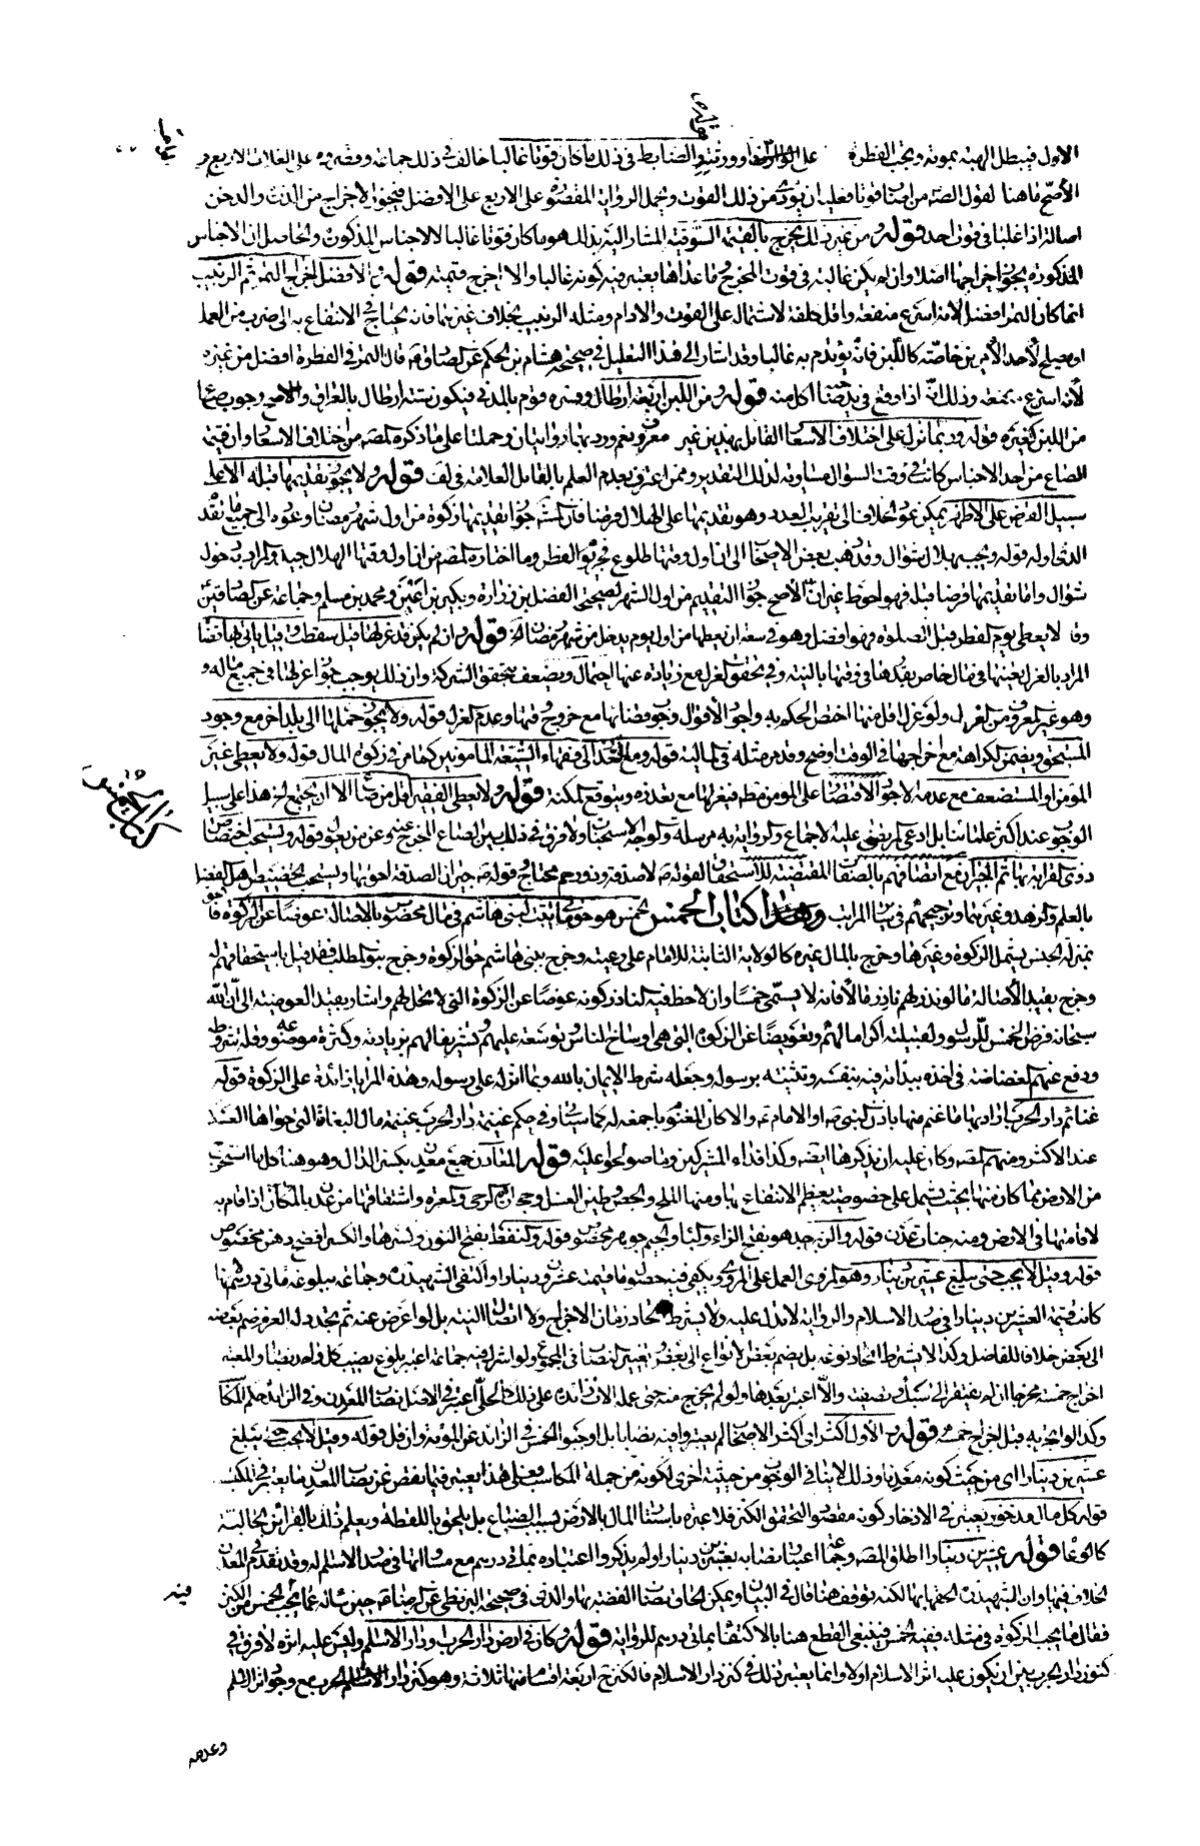 الاول فيبطل الهبة بموته وتجب الفطرة على الوارث قوله والضابط في ذلك ما كان قوتا غالبا خالف في ذلك جماعة على الغلات الاربع و
الأصح ما هنا لقول الصادق من اقتات قوتا فعليه ان يؤدي من ذلك القوت وتحمل الرواية المقتصرة على الاربع على الافضل فيجوز الاخراج من الذرة والدخن
اصالة اذا غلبا في قوت احد قوله ومن غير ذلك يخرج بالقيمة السوقية المشار اليه بذلك هو ما كان قوتا غالبا لا الاجناس المذكورة والحاصل ان الاجناس
المذكورة يجوز اخراجها اصلا وان لم يكن غالبة في قوت المخرج وما عداها يعتبر فيه كونه غالبا والا اخرج قيمته قوله والافضل اخراج التمر ثم الزبيب
انما كان التمر افضل لانه اسرع منفعة واقل كلفة لاشتماله على القوت والادام ومثله الزبيب بخلاف غيرهما فانه يحتاج في الانتفاع به الى ضرب من العمل
او يصلح لأحد الأمرين خاصة كاللبن فانه يؤتدم به غالبا وقد اشار الى هذا التعليل في صحيحة هشام بن الحكم عن الصادق ع قال التمر في الفطرة افضل من غيره
لأنه اسرع منفعة وذلك انه اذا وقع في يد صاحبه اكل منه قوله ومن اللبن اربعة ارطال وفسره قوم بالمدني فيكون ستة ارطال بالعراقي والاصح وجوب صاع
من اللبن كغيره قوله وربما نزل على اختلاف الاسعار القائل بهذين غير معروف نعم ورد بهما روايتان وحملتا على ما ذكره المصنف من اختلاف الاسعار وان قيمة
الصاع من احد الاجناس كانت في وقت السؤال مساوية لذلك التقدير وممن اعترف بعدم العلم بالقائل العلامة في لف قوله ولا يجوز تقديمها قبله الا على
سبيل القرض على الاظهر يمكن عود الخلاف الى تقريب العدد وهو تقديمها على الهلال فرضا فان المشهور جواز تقديمها زكوة من اول شهر رمضان وعوده الى جميع ما تقدم
الدعاوله قوله وتجب بهلال شوال وقد ذهب بعض الاصحاب الى ان اول وقتها طلوع فجر يوم الفطر وما اختاره المصنف من ان اول وقتها الهلال جيد والمراد به دخول
شوال واما تقديمها قرضا قبله فهو احوط غير ان الأصح جواز التقديم من اول الشهر لصحيحة الفضل بن زرارة وبكير بن اعين ومحمد بن مسلم وجماعة عن الصادقين
وقالا يعطى يوم الفطر قبل الصلوة فهو افضل وهو في سعة ان يعطيها من اول يوم يدخل من شهر رمضان قوله وان لم يكن قد عزلها قيل سقطت وقيل يأتي بها قضاء
المراد بالعزل تعيينها في مال خاص بقدرها في وقتها بالنية وفي تحقق العزل مع زيادة عنها احتمال ويضعف بتحقق الشركة وان ذلك يوجب جواز عزلها في جميع ماله و
وهو غير المعروف من العزل ولو عزل اقل منها اختص الحكم به واجود الأقوال وجوب قضائها مع خروج وقتها وعدم العزل قوله ولا يجوز حملها الى بلد اخر مع وجود
المستحق ويضمن لكراهة مع اخراجها في الوقت اوضح وقد مر مثله في المالية قوله ومع التعذر الى فقهاء الشيعة المأمونين كما مر في زكوة المال قوله ولا يعطى غير
المؤمن او المستضعف مع عدمه الاجود الاقتصار على المؤمن مطلقا فيعزلها مع تعذره ويتوقع المكنة قوله ولا يعطى الفقير اقل من صاع الا ان يجتمع من هذا على سبيل
الوجوب عند اكثر علمائنا بل ادعى المرتضى عليه الاجماع والرواية به مرسلة والوجه الاستحباب ولا فرق في ذلك بين الصاع المخرج عنه وعن من يعوله قوله ويستحب اختصاص
ذوي القرابة بها ثم الجيران مع اتصافهم بالصفات المقتضية للاستحقاق لقوله ص لا صدقة وذو رحم محتاج قوله ص جيران الصدقة احق بها ويستحب تخصيص اهل الفضل
بالعلم والزهد وغيرهما وترجيحهم في سائر المراتب وهذا كتاب الخمس الخمس هو حق مالي يثبت لبني هاشم في مال مخصوص بالاصالة عوضا عن الزكوة فالحق
بمنزلة الجنس يشمل الزكوة وغيرها وخرج بالمال غيره كالولاية الثابتة للامام على رعيته وخرج ببني هاشم حق الزكوة وخرج بنو المطلب فقد قيل باستحقاقهم له
وخرج بقيد الأصالة ما لو نذر لهم ناذر مالا فانه لا يسمى خمسا وان لاحظ فيه الناذر كونه عوضا عن الزكوة التي لا تحل لهم واشار بقيد العوضية الى ان الله
سبحانه فرض الخمس للرسول ولقبيلته اكراما لهم وتعويضا عن الزكوة التي هي اوساخ الناس وتوسعة عليهم وتشريفا لهم بزيادته وكثرة موضوعه وقلة شروطه
ودفع عنهم الغضاضة في اخذه ببدأته فيه بنفسه وتثنيته برسوله وجعله شرط الايمان بالله وبما انزله على رسوله وهذه المزايا زائدة على الزكوة قوله
غنائم دار الحرب اراد بها ما غنم منها باذن النبي ص او الامام ع والا كان المغنوم باجمعه له كما سيأتي وفي حكم غنيمة دار الحرب غنيمة مال البغاة التي حواها العسكر
عند الاكثر ومنهم المصنف وكان عليه ان يذكرها ايضا وكذا فداء المشركين وما صولحوا عليه قوله المعادن جمع معدن بكسر الدال وهو هنا كل ما استخرج
من الارض مما كان منها بحيث يشتمل على خصوصية يعظم الانتفاع بها ومنها الملح والجص وطين الغسل وحجارة الرحى والمغرة واشتقاقها من عدن بالمكان اذا اقام به
لاقامتها في الارض ومنه جنات عدن قوله والزبرجد هو بفتح الزاء والباء والجيم جوهر مخصوص قوله والنفط بفتح النون وكسرها والكسر افصح دهن مخصوص
قوله وقيل لا يجب حتى يبلغ عشرين دينارا وهو المروي العمل على المروي ويكفي فيه حصول ما قيمته عشرون دينارا واكتفى الشهيد ره وجماعة ببلوغه مائتي درهم لأنها
كانت قيمة العشرين دينارا في صدر الاسلام والرواية لا تدل عليه ولا يشترط اتحاد زمان الاخراج ولا اتصال النية بل لو اعرض عنه ثم تجدد له العزم ضم بعضه
الى بعض خلافا للفاضل وكذا لا يشترط اتحاد نوعه بل يضم بعض الانواع الى بعض ويعتبر النصاب في المجموع ولو اشترك فيه جماعة اعتبر بلوغ نصيب كل واحد نصابا والمعتبر
اخراج خمسه مخرجا ان لم يفتقر الى سبك وتصفية والا اعتبر بعدها ولو لم يخرج منه حتى عمله الات زائدة على ذلك كالحلي اعتبر في الاصل نصاب المعدن وفي الزائد حكم المكاسب
وكذا لو اتجر به قبل اخراج خمسه قوله والأول اكثر اي اكثر الاصحاب لم يعتبروا فيه نصابا بل اوجبوا الخمس في الزائد عن المؤنة وان قل قوله وقيل لا يجب حتى يبلغ
عشرين دينارا اي من حيث كونه معدنا وذلك لا ينافي الوجوب من حيثية اخرى لكونه من جملة المكاسب وعلى هذا يعتبر فيما نقص عن نصاب المعدن ما يعتبر في المكسب
قوله كل مال مذخور يعتبر في الادخار كونه مقصودا لتحقق الكنز فلا عبرة باستتار المال بالارض بسبب الضياع بل يلحق باللقطة ويعلم ذلك بالقرائن الحالية
كالوعاء قوله عشرين دينارا اطلق المصنف وجماعة اعتبار نصابه بعشرين دينارا ولم يذكروا اعتباره بمائتي درهم مع مساواتها في صدر الاسلام له وقد تقدم في المعدن
الخلاف فيهما وان الشهيد ره الحقها بها لكنه توقف هنا فقال في البيان ويمكن الحاق نصاب الفضة بها والذي في صحيحة البزنطي عن الرضا ع حين سأله عما يجب الخمس من الكنز فيه
فقال ما يجب الزكوة في مثله ففيه الخمس فينبغي القطع هنا بالاكتفاء بمائتي درهم للرواية قوله وكان في ارض دار الحرب او دار الاسلام وليس عليه اثره لا فرق في
كنوز دار الحرب بين ان يكون عليه اثر الاسلام اولا وانما يعتبر ذلك في كنز دار الاسلام فالكنز ح اربعة اقسام منها ثلاثة وهو كنز دار الحرب مع وجود اثر الاسلام
وعدمه
كتاب الخمس